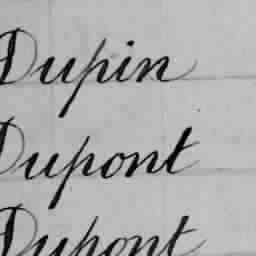 Dupin
Dupont
Dupont